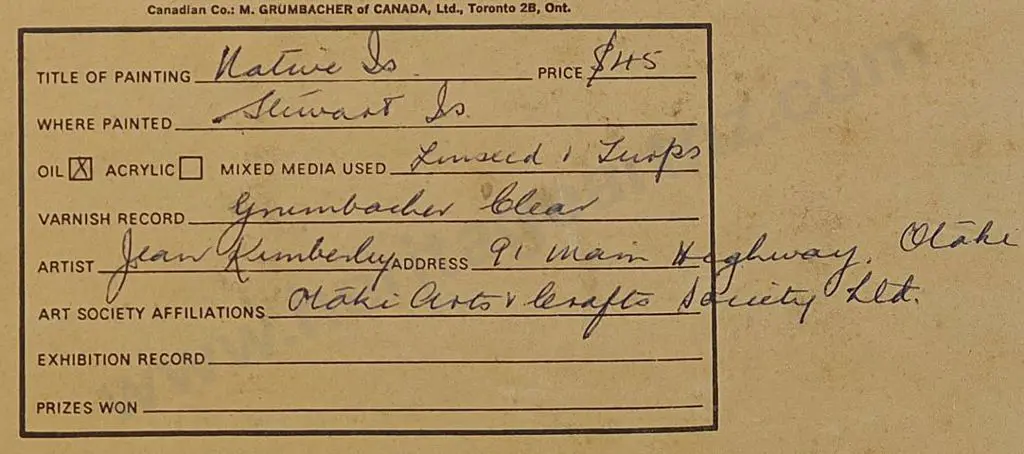 Canadian Co.: M. GRUMBACHER of CANADA, Ltd., Toronto 2B, Ont.
TITLE OF PAINTING Native Is. PRICE $45
WHERE PAINTED Stewart Is.
OIL [X] ACRYLIC [ ] MIXED MEDIA USED Linseed & Turps
VARNISH RECORD Grumbacher Clear
ARTIST Jean Kimberley ADDRESS 91 Main Highway, Otāki
ART SOCIETY AFFILIATIONS Otāki Arts & Crafts Society Ltd.
EXHIBITION RECORD
PRIZES WON